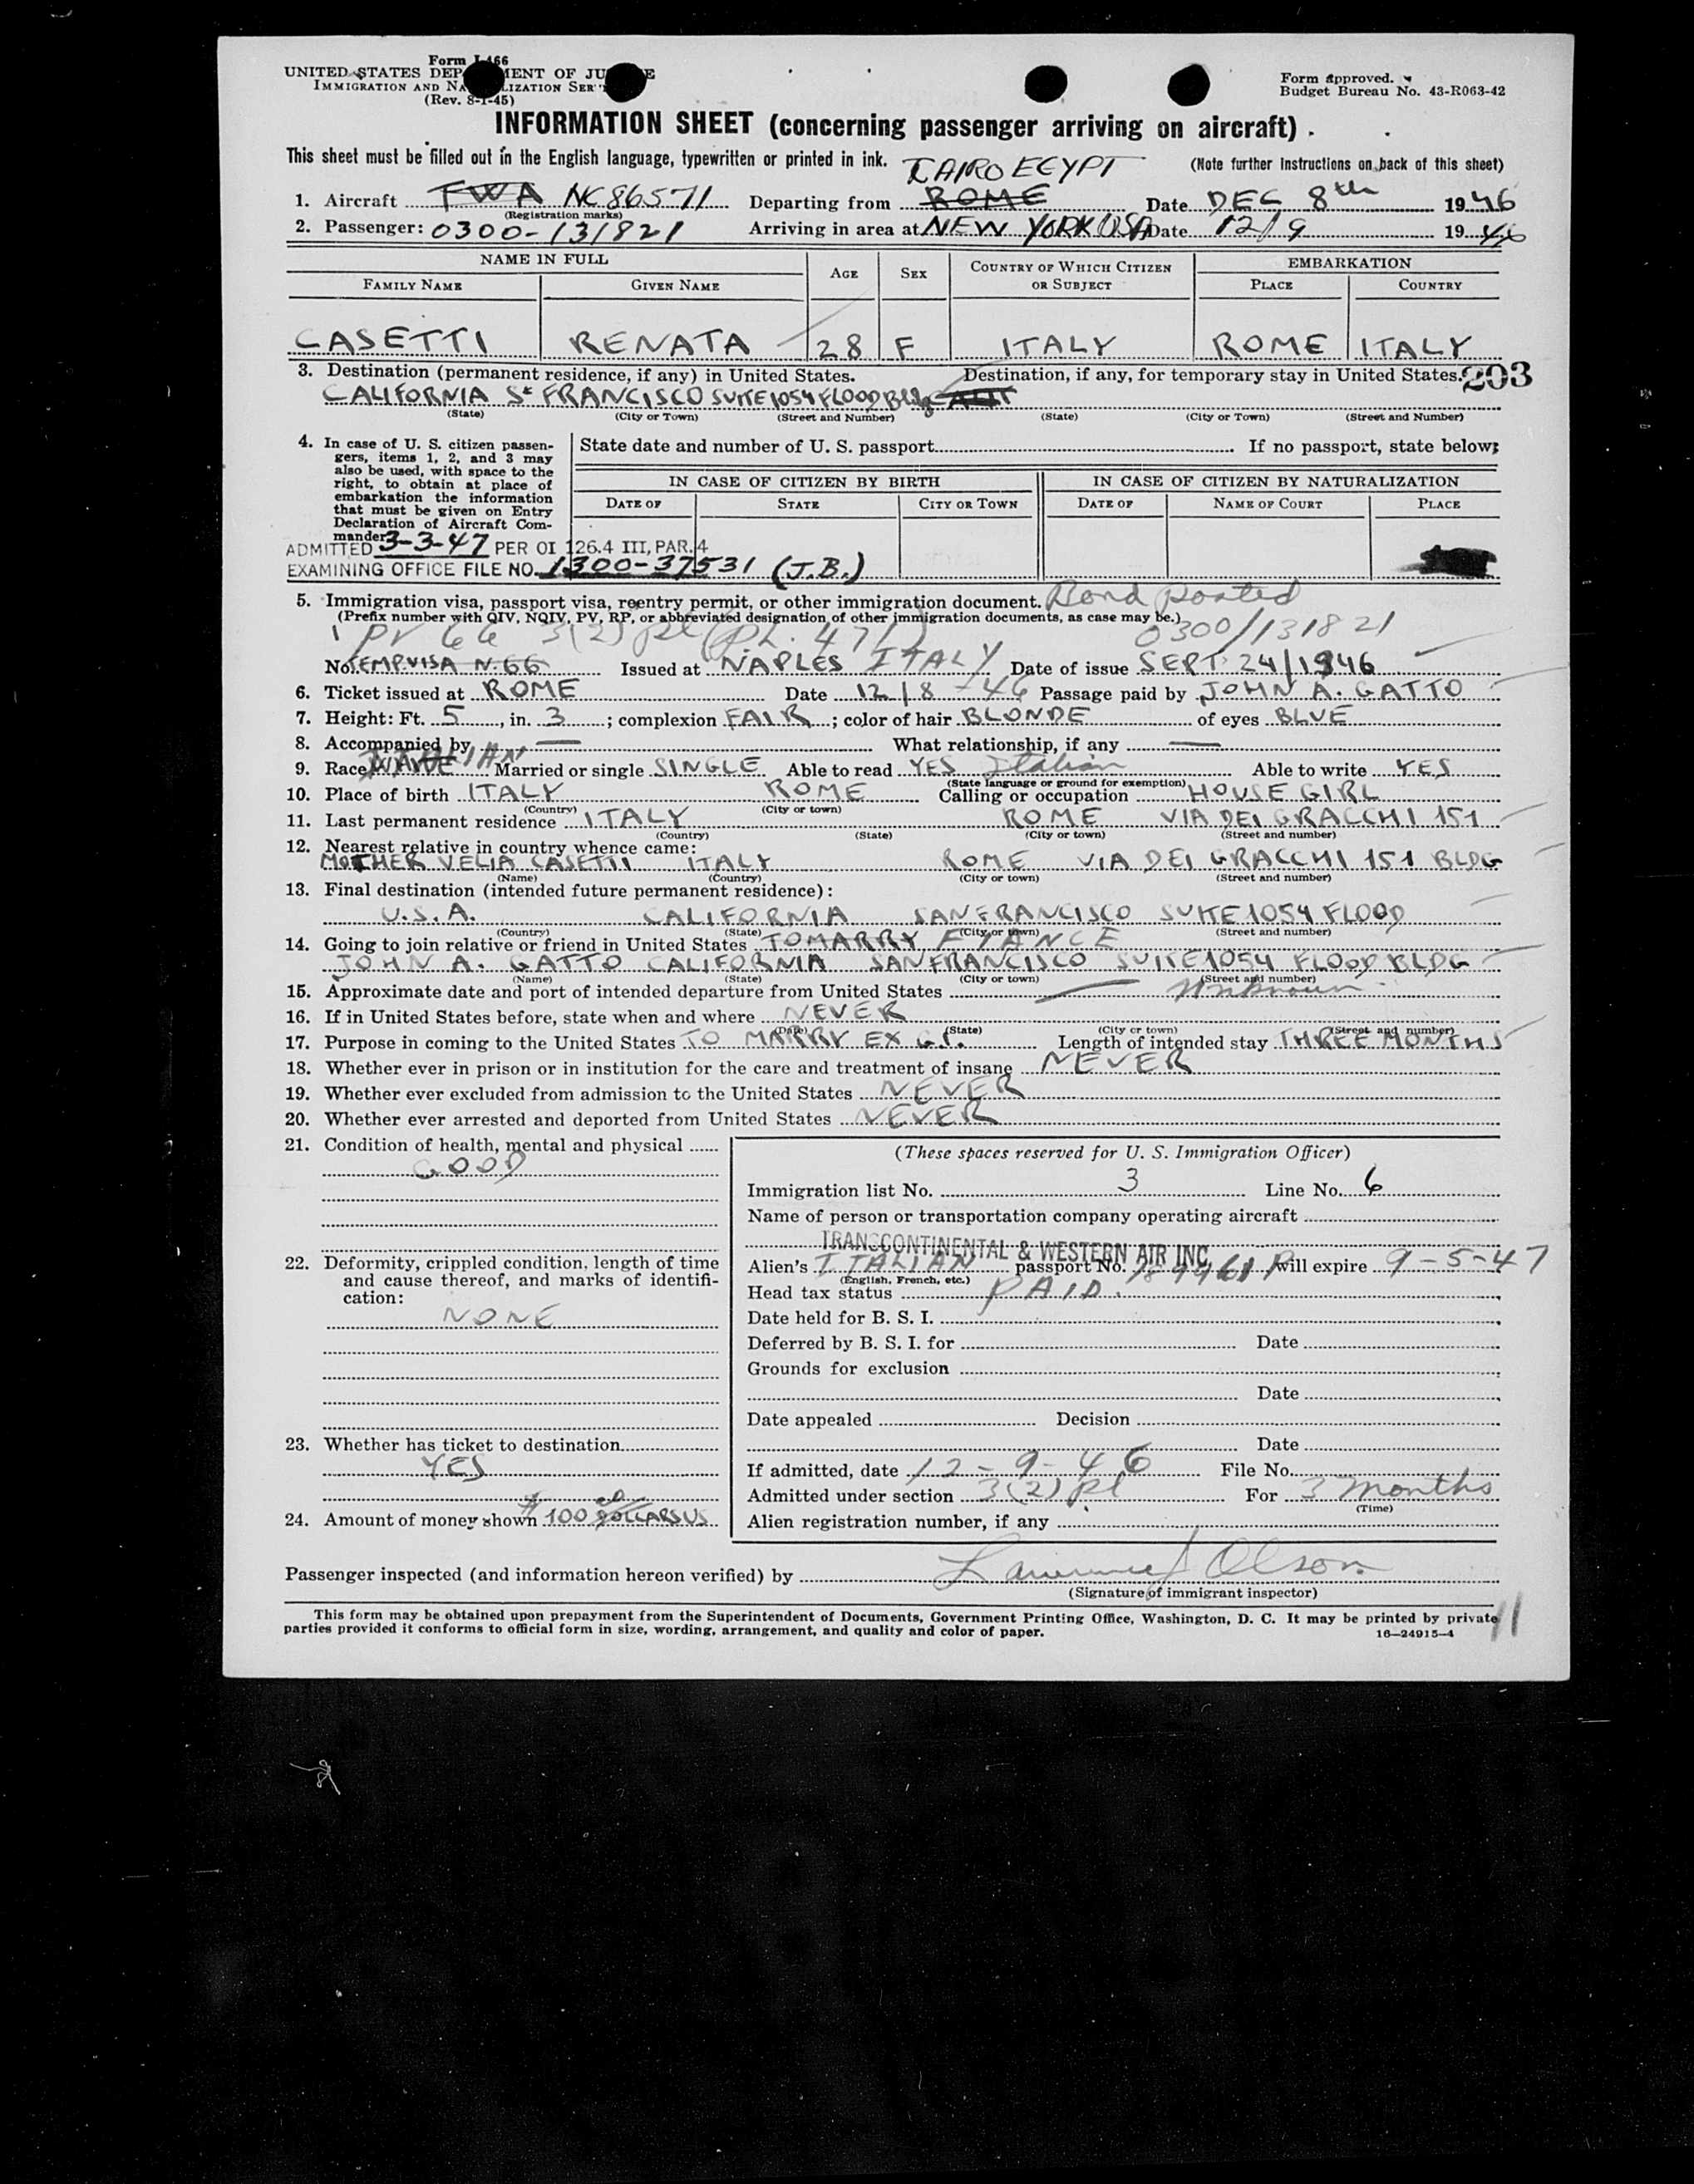 Form I-466
UNITED STATES DEPARTMENT OF JUSTICE
IMMIGRATION AND NATURALIZATION SERVICE
(Rev. 8-1-45)
Form approved.
Budget Bureau No. 43-R063-42
INFORMATION SHEET (concerning passenger arriving on aircraft)
This sheet must be filled out in the English language, typewritten or printed in ink. CAIRO EGYPT (Note further instructions on back of this sheet)
1. Aircraft TWA NC86571 Departing from ROME Date DEC 8th 1946
(Registration marks)
2. Passenger: 0300-131821 Arriving in area at NEW YORK USA Date 12/9 1946
NAME IN FULL AGE SEX COUNTRY OF WHICH CITIZEN OR SUBJECT EMBARKATION
FAMILY NAME GIVEN NAME PLACE COUNTRY
CASETTI RENATA 28 F ITALY ROME ITALY
3. Destination (permanent residence, if any) in United States. Destination, if any, for temporary stay in United States. 203
CALIFORNIA St FRANCISCO SUITE 1054 FLOOD Bldg
(State) (City or Town) (Street and Number) (State) (City or Town) (Street and Number)
4. In case of U. S. citizen passengers, items 1, 2, and 3 may also be used, with space to the right, to obtain at place of embarkation the information that must be given on Entry Declaration of Aircraft Commander
State date and number of U. S. passport If no passport, state below:
IN CASE OF CITIZEN BY BIRTH IN CASE OF CITIZEN BY NATURALIZATION
DATE OF STATE CITY OR TOWN DATE OF NAME OF COURT PLACE
ADMITTED 3-3-47 PER OI 126.4 III, PAR. 4
EXAMINING OFFICE FILE NO. 1300-37531 (J.B.)
5. Immigration visa, passport visa, reentry permit, or other immigration document. Bond posted
(Prefix number with QIV, NQIV, PV, RP, or abbreviated designation of other immigration documents, as case may be.)
PV 66 3(2) PL (P.L. 471) 0300/131821
No. TEMP. VISA N. 66 Issued at NAPLES ITALY Date of issue SEPT. 24/1946
6. Ticket issued at ROME Date 12/8-46 Passage paid by JOHN A. GATTO
7. Height: Ft. 5, in. 3; complexion FAIR; color of hair BLONDE of eyes BLUE
8. Accompanied by — What relationship, if any —
9. Race ITALIAN Married or single SINGLE Able to read YES Italian Able to write YES
(State language or ground for exemption)
10. Place of birth ITALY ROME Calling or occupation HOUSE GIRL
(Country) (City or town)
11. Last permanent residence ITALY ROME VIA DEI GRACCHI 151
(Country) (State) (City or town) (Street and number)
12. Nearest relative in country whence came:
MOTHER VELIA CASETTI ITALY ROME VIA DEI GRACCHI 151 BLDG
(Name) (Country) (City or town) (Street and number)
13. Final destination (intended future permanent residence):
U.S.A. CALIFORNIA SAN FRANCISCO SUITE 1054 FLOOD
(Country) (State) (City or town) (Street and number)
14. Going to join relative or friend in United States TO MARRY FIANCE
JOHN A. GATTO CALIFORNIA SAN FRANCISCO SUITE 1054 FLOOD BLDG
(Name) (State) (City or town) (Street and number)
15. Approximate date and port of intended departure from United States — unknown
16. If in United States before, state when and where NEVER
(Date) (State) (City or town) (Street and number)
17. Purpose in coming to the United States TO MARRY EX G.I. Length of intended stay THREE MONTHS
18. Whether ever in prison or in institution for the care and treatment of insane NEVER
19. Whether ever excluded from admission to the United States NEVER
20. Whether ever arrested and deported from United States NEVER
21. Condition of health, mental and physical
GOOD
22. Deformity, crippled condition, length of time and cause thereof, and marks of identification:
NONE
23. Whether has ticket to destination
YES
24. Amount of money shown $100 DOLLARS US
(These spaces reserved for U. S. Immigration Officer)
Immigration list No. 3 Line No. 6
Name of person or transportation company operating aircraft
TRANSCONTINENTAL & WESTERN AIR INC.
Alien's ITALIAN passport No. will expire 9-5-47
(English, French, etc.)
Head tax status PAID.
Date held for B. S. I.
Deferred by B. S. I. for Date
Grounds for exclusion
Date
Date appealed Decision
Date
If admitted, date 12-9-46 File No.
Admitted under section 3(2) PL For 3 months
(Time)
Alien registration number, if any
Passenger inspected (and information hereon verified) by Lawrence J Olson
(Signature of immigrant inspector)
This form may be obtained upon prepayment from the Superintendent of Documents, Government Printing Office, Washington, D. C. It may be printed by private
parties provided it conforms to official form in size, wording, arrangement, and quality and color of paper. 16—24915-4